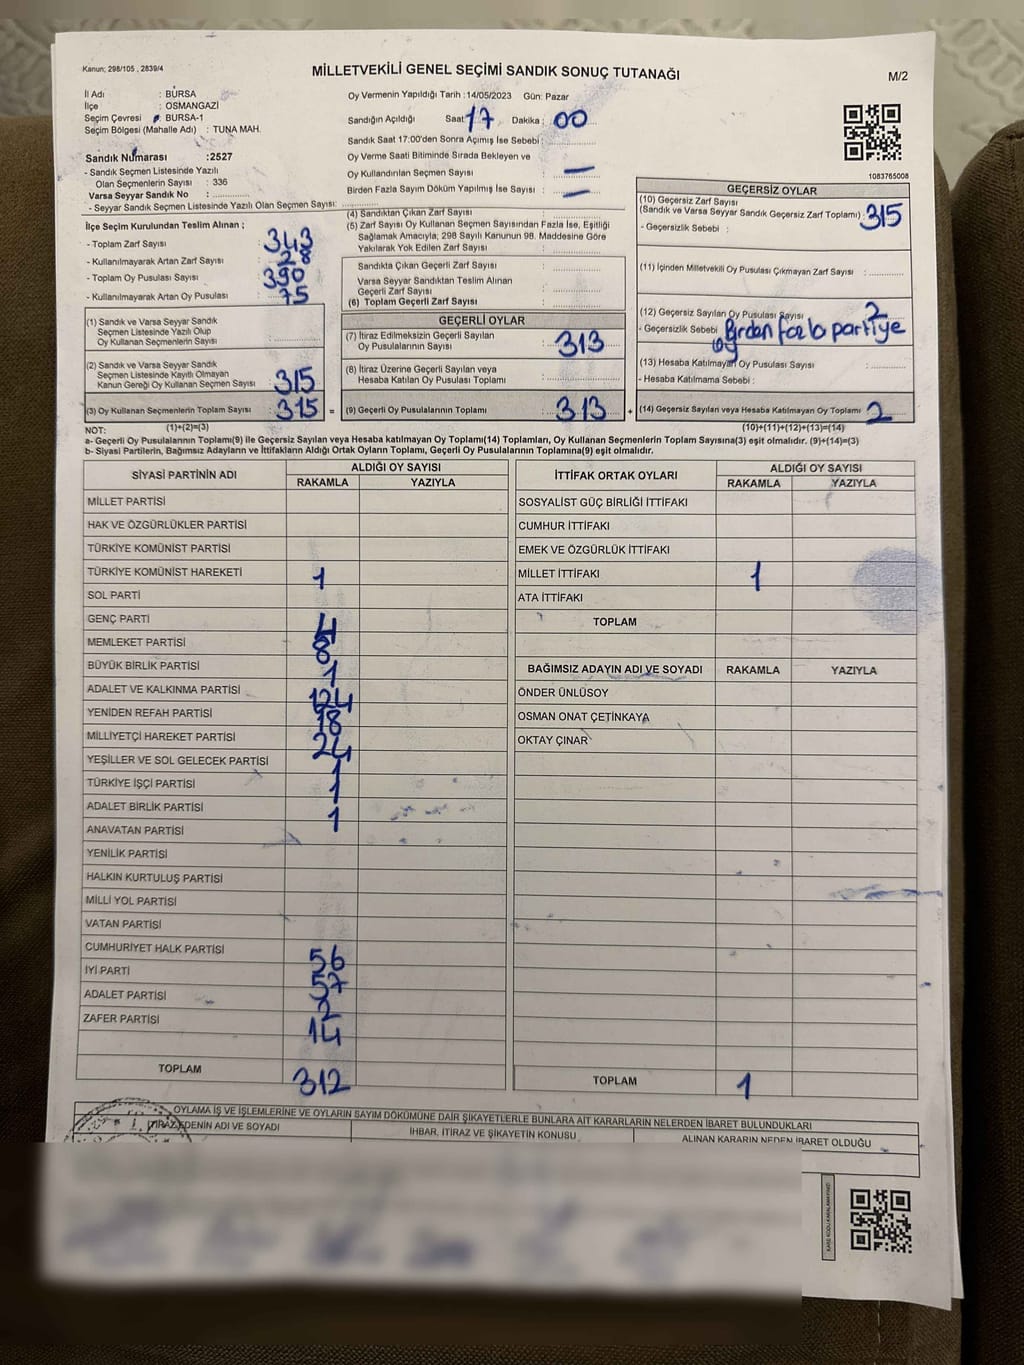 Kanun; 298/105 , 2839/4
MİLLETVEKİLİ GENEL SEÇİMİ SANDIK SONUÇ TUTANAĞI
M/2
İl Adı : BURSA
İlçe : OSMANGAZİ
Seçim Çevresi : BURSA-1
Seçim Bölgesi (Mahalle Adı) : TUNA MAH.
Sandık Numarası :2527
- Sandık Seçmen Listesinde Yazılı
Olan Seçmenlerin Sayısı : 336
Varsa Seyyar Sandık No :
- Seyyar Sandık Seçmen Listesinde Yazılı Olan Seçmen Sayısı:
Oy Vermenin Yapıldığı Tarih :14/05/2023 Gün: Pazar
Sandığın Açıldığı Saat: 17 Dakika: 00
Sandık Saat 17:00'den Sonra Açımış İse Sebebi:
Oy Verme Saati Bitiminde Sırada Bekleyen ve
Oy Kullandırılan Seçmen Sayısı : —
Birden Fazla Sayım Döküm Yapılmış İse Sayısı : —
1083765008
İlçe Seçim Kurulundan Teslim Alınan ;
- Toplam Zarf Sayısı : 343
- Kullanılmayarak Artan Zarf Sayısı : 28
- Toplam Oy Pusulası Sayısı : 390
- Kullanılmayarak Artan Oy Pusulası : 75
(1) Sandık ve Varsa Seyyar Sandık
Seçmen Listesinde Yazılı Olup
Oy Kullanan Seçmenlerin Sayısı :
(2) Sandık ve Varsa Seyyar Sandık
Seçmen Listesinde Kayıtlı Olmayan
Kanun Gereği Oy Kullanan Seçmen Sayısı : 315
(3) Oy Kullanan Seçmenlerin Toplam Sayısı : 315 =
(4) Sandıktan Çıkan Zarf Sayısı :
(5) Zarf Sayısı Oy Kullanan Seçmen Sayısından Fazla İse, Eşitliği
Sağlamak Amacıyla, 298 Sayılı Kanunun 98. Maddesine Göre
Yakılarak Yok Edilen Zarf Sayısı :
Sandıkta Çıkan Geçerli Zarf Sayısı :
Varsa Seyyar Sandıktan Teslim Alınan
Geçerli Zarf Sayısı :
(6) Toplam Geçerli Zarf Sayısı :
GEÇERLİ OYLAR
(7) İtiraz Edilmeksizin Geçerli Sayılan
Oy Pusulalarının Sayısı : 313
(8) İtiraz Üzerine Geçerli Sayılan veya
Hesaba Katılan Oy Pusulası Toplamı :
(9) Geçerli Oy Pusulalarının Toplamı : 313 +
GEÇERSİZ OYLAR
(10) Geçersiz Zarf Sayısı
(Sandık ve Varsa Seyyar Sandık Geçersiz Zarf Toplamı) : 315
- Geçersizlik Sebebi :
(11) İçinden Milletvekili Oy Pusulası Çıkmayan Zarf Sayısı :
(12) Geçersiz Sayılan Oy Pusulası Sayısı : 2
- Geçersizlik Sebebi : Birden fazla partiye
oy
(13) Hesaba Katılmayan Oy Pusulası Sayısı :
- Hesaba Katılmama Sebebi :
(14) Geçersiz Sayılan veya Hesaba Katılmayan Oy Toplamı : 2
NOT: (1)+(2)=(3) (10)+(11)+(12)+(13)=(14)
a- Geçerli Oy Pusulalarının Toplamı(9) ile Geçersiz Sayılan veya Hesaba katılmayan Oy Toplamı(14) Toplamları, Oy Kullanan Seçmenlerin Toplam Sayısına(3) eşit olmalıdır. (9)+(14)=(3)
b- Siyasi Partilerin, Bağımsız Adayların ve İttifakların Aldığı Ortak Oyların Toplamı, Geçerli Oy Pusulalarının Toplamına(9) eşit olmalıdır.
SİYASİ PARTİNİN ADI ALDIĞI OY SAYISI
RAKAMLA YAZIYLA
MİLLET PARTİSİ
HAK VE ÖZGÜRLÜKLER PARTİSİ
TÜRKİYE KOMÜNİST PARTİSİ
TÜRKİYE KOMÜNİST HAREKETİ 1
SOL PARTİ
GENÇ PARTİ 4
MEMLEKET PARTİSİ 8
BÜYÜK BİRLİK PARTİSİ 1
ADALET VE KALKINMA PARTİSİ 124
YENİDEN REFAH PARTİSİ 18
MİLLİYETÇİ HAREKET PARTİSİ 24
YEŞİLLER VE SOL GELECEK PARTİSİ 1
TÜRKİYE İŞÇİ PARTİSİ 1
ADALET BİRLİK PARTİSİ 1
ANAVATAN PARTİSİ
YENİLİK PARTİSİ
HALKIN KURTULUŞ PARTİSİ
MİLLİ YOL PARTİSİ
VATAN PARTİSİ
CUMHURİYET HALK PARTİSİ 56
İYİ PARTİ 57
ADALET PARTİSİ 2
ZAFER PARTİSİ 14
TOPLAM 312
İTTİFAK ORTAK OYLARI ALDIĞI OY SAYISI
RAKAMLA YAZIYLA
SOSYALİST GÜÇ BİRLİĞİ İTTİFAKI
CUMHUR İTTİFAKI
EMEK VE ÖZGÜRLÜK İTTİFAKI
MİLLET İTTİFAKI 1
ATA İTTİFAKI
TOPLAM
BAĞIMSIZ ADAYIN ADI VE SOYADI RAKAMLA YAZIYLA
ÖNDER ÜNLÜSOY
OSMAN ONAT ÇETİNKAYA
OKTAY ÇINAR
TOPLAM 1
OYLAMA İŞ VE İŞLEMLERİNE VE OYLARIN SAYIM DÖKÜMÜNE DAİR ŞİKAYETLERLE BUNLARA AİT KARARLARIN NELERDEN İBARET BULUNDUKLARI
İTİRAZ EDENİN ADI VE SOYADI İHBAR, İTİRAZ VE ŞİKAYETİN KONUSU ALINAN KARARIN NEDEN İBARET OLDUĞU